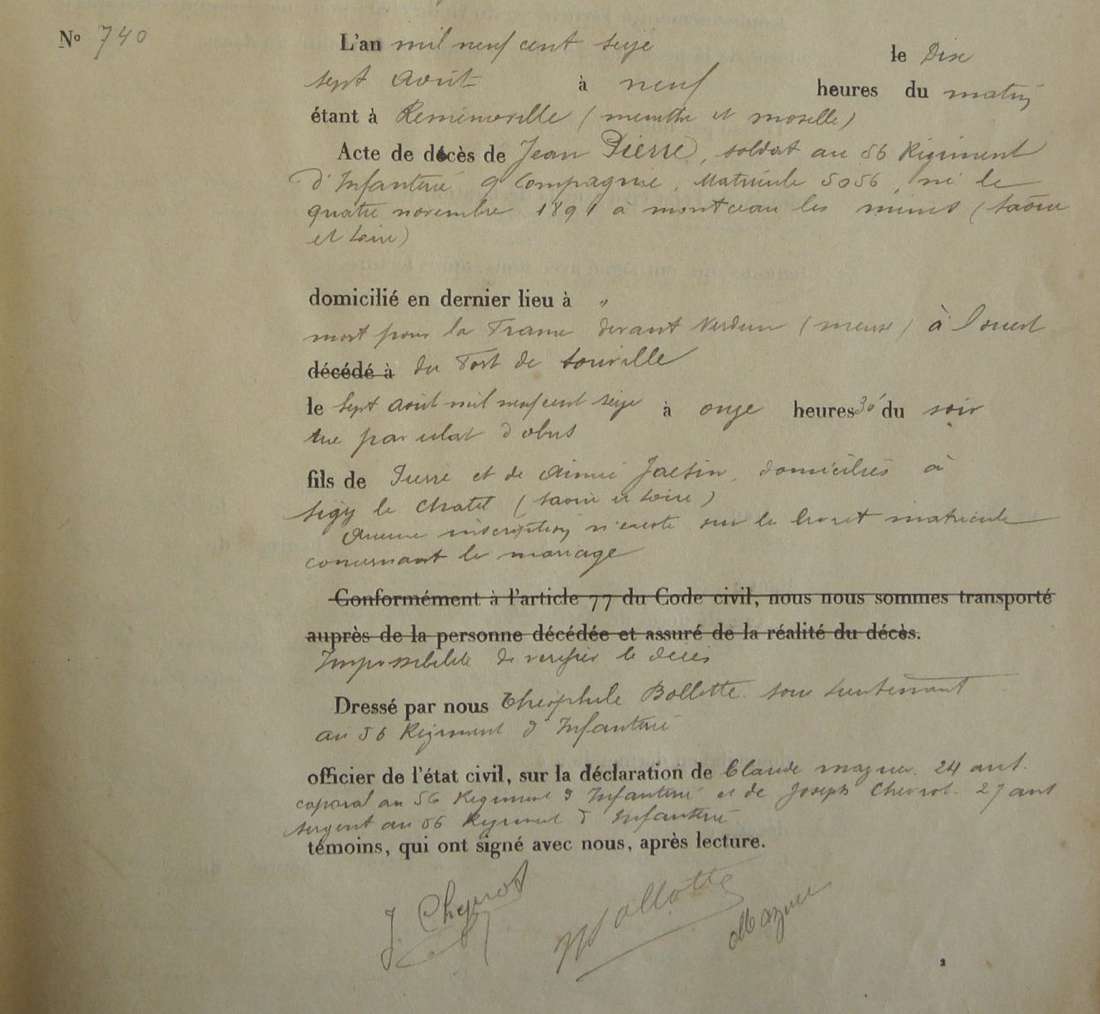 No 740
L'an mil neuf cent seize le Dix
sept août à neuf heures du matin
étant à Remenoville (meurthe et moselle)
Acte de décès de Jean Pierre, soldat au 56 Régiment
d'Infanterie 9 Compagnie, Matricule 5056, né le
quatre novembre 1891 à montceau les mines (Saône
et Loire)
domicilié en dernier lieu à "
mort pour la France devant Verdun (meuse) à l'ouest
décédé à du Fort de Souville
le sept août mil neuf cent seize à onze heures 30' du soir
tué par éclat d'obus
fils de Pierre et de Aimée domiciliés à
Sigy le Chatel (Saône et Loire)
Aucune inscription n'existe sur le livret matricule
concernant le mariage
Conformément à l'article 77 du Code civil, nous nous sommes transporté
auprès de la personne décédée et assuré de la réalité du décès.
Impossibilité de vérifier le décès
Dressé par nous Théophile Bollotte sous lieutenant
au 56 Régiment d'Infanterie
officier de l'état civil, sur la déclaration de Claude mazuer 24 ans
caporal au 56 Régiment d'Infanterie et de Joseph Chevrot 27 ans
sergent au 56 Régiment d'Infanterie
témoins, qui ont signé avec nous, après lecture.
J. Chevrot Bollotte Mazuer
2